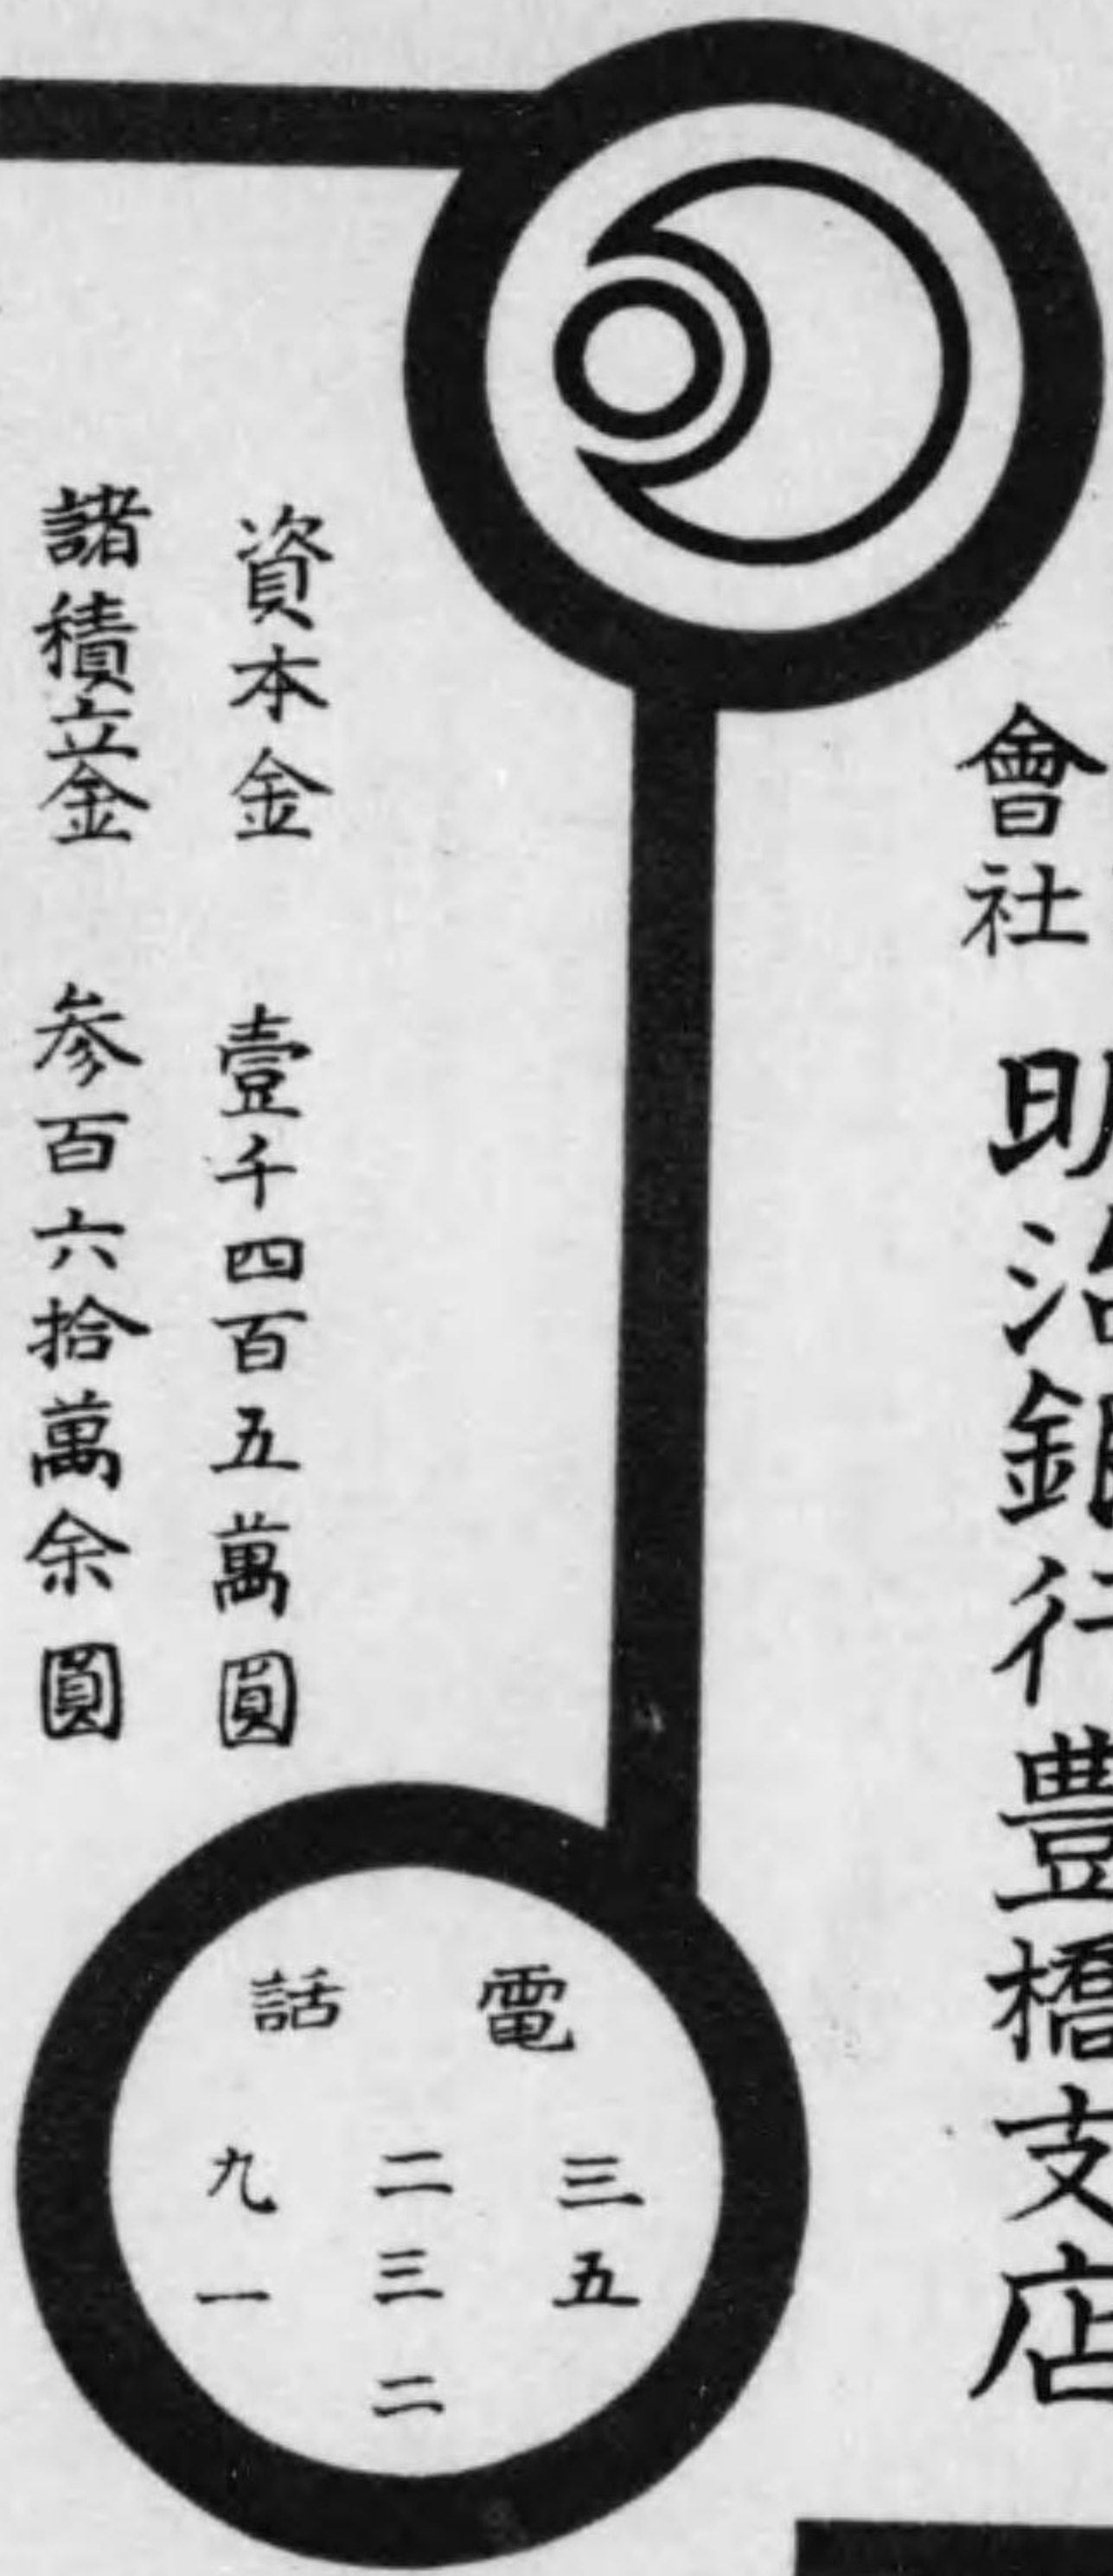 會社
明治銀行豊橋支店
資本金 壹千四百五萬圓
諸積立金 参百六拾萬余圓
電話
三五
二三二
九一